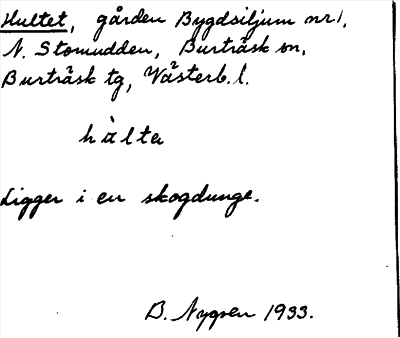 Hultet, gården Bygdsiljum nr 1,
N. Stomudden, Burträsk sn,
Burträsk tg, Västerb. l.
hàlta
Ligger i en skogdunge.
B. Nygren 1933.